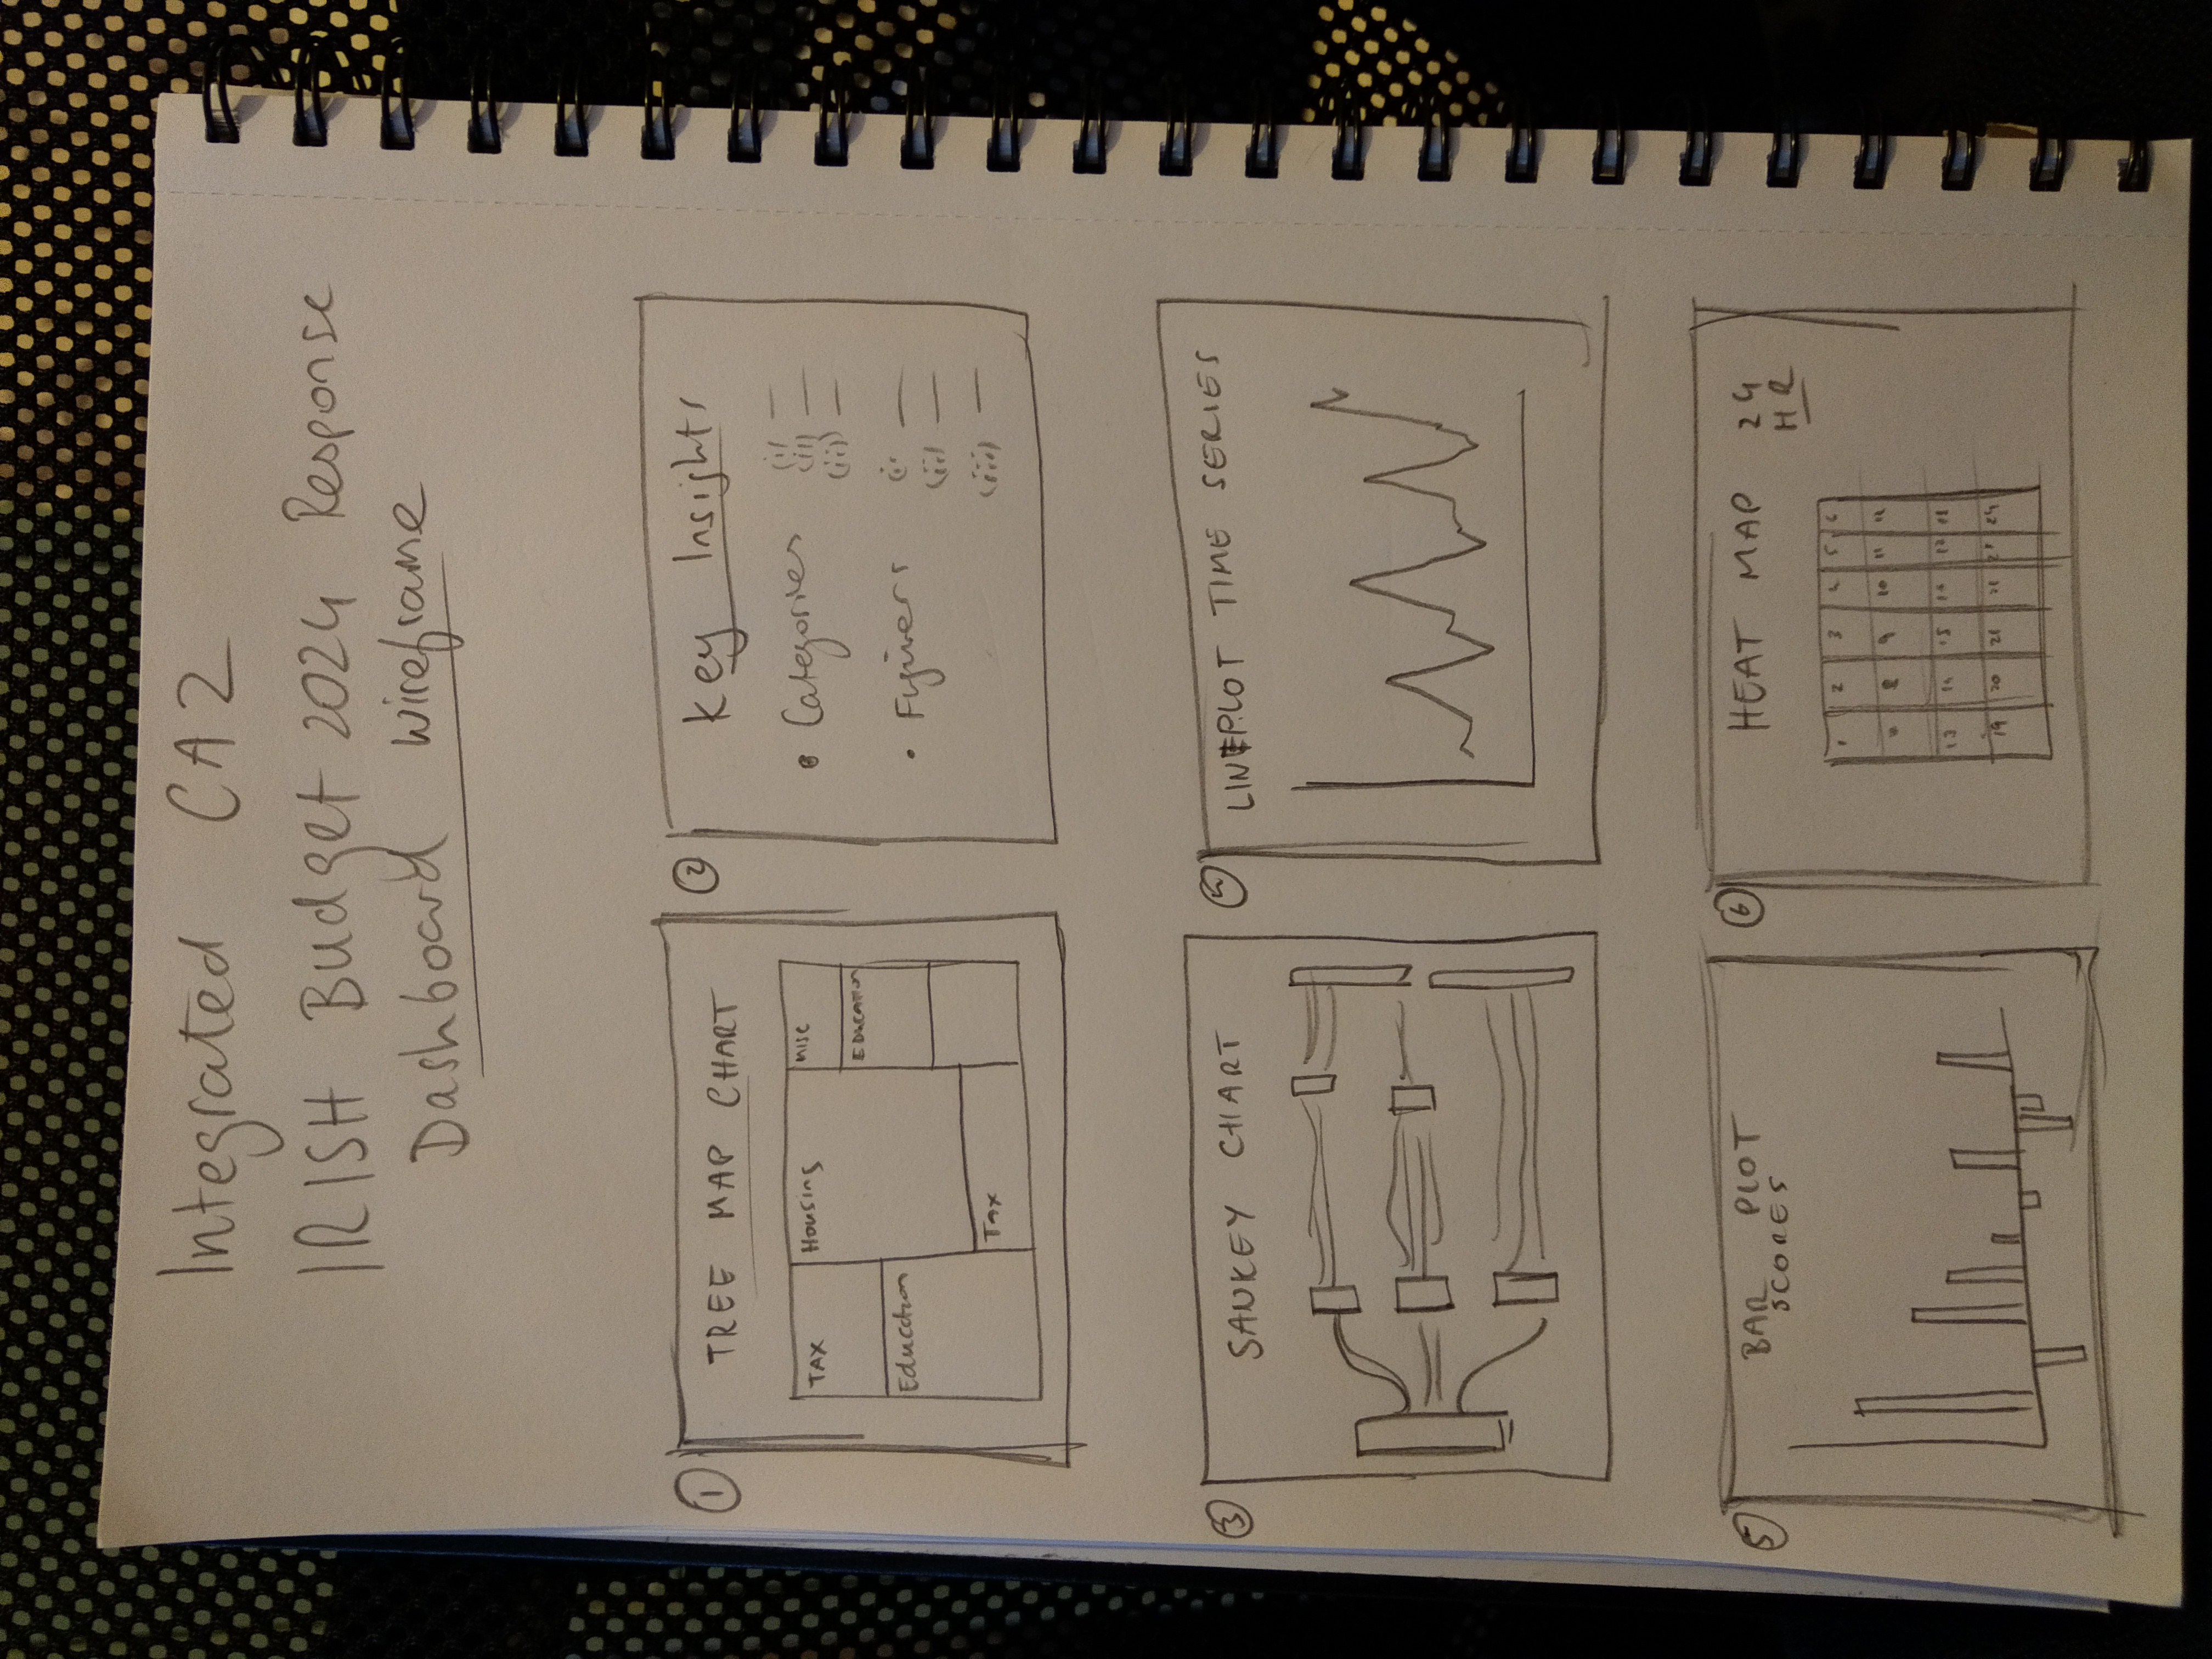 Integrated CA2
IRISH Budget 2024 Response
Dashboard Wireframe
①
TREE MAP CHART
TAX
Housing
misc
Education
Education
Tax
②
Key Insights
• Categories
(i) —
(ii) —
(iii) —
• Figuers
(i) —
(ii) —
(iii) —
③
SANKEY CHART
④
LINEPLOT TIME SERIES
⑤
BAR PLOT
SCORES
⑥
HEAT MAP 24
HR
1 2 3 4 5 6
8 9 10 11 12
13 14 15 16 17 18
19 20 21 22 23 24